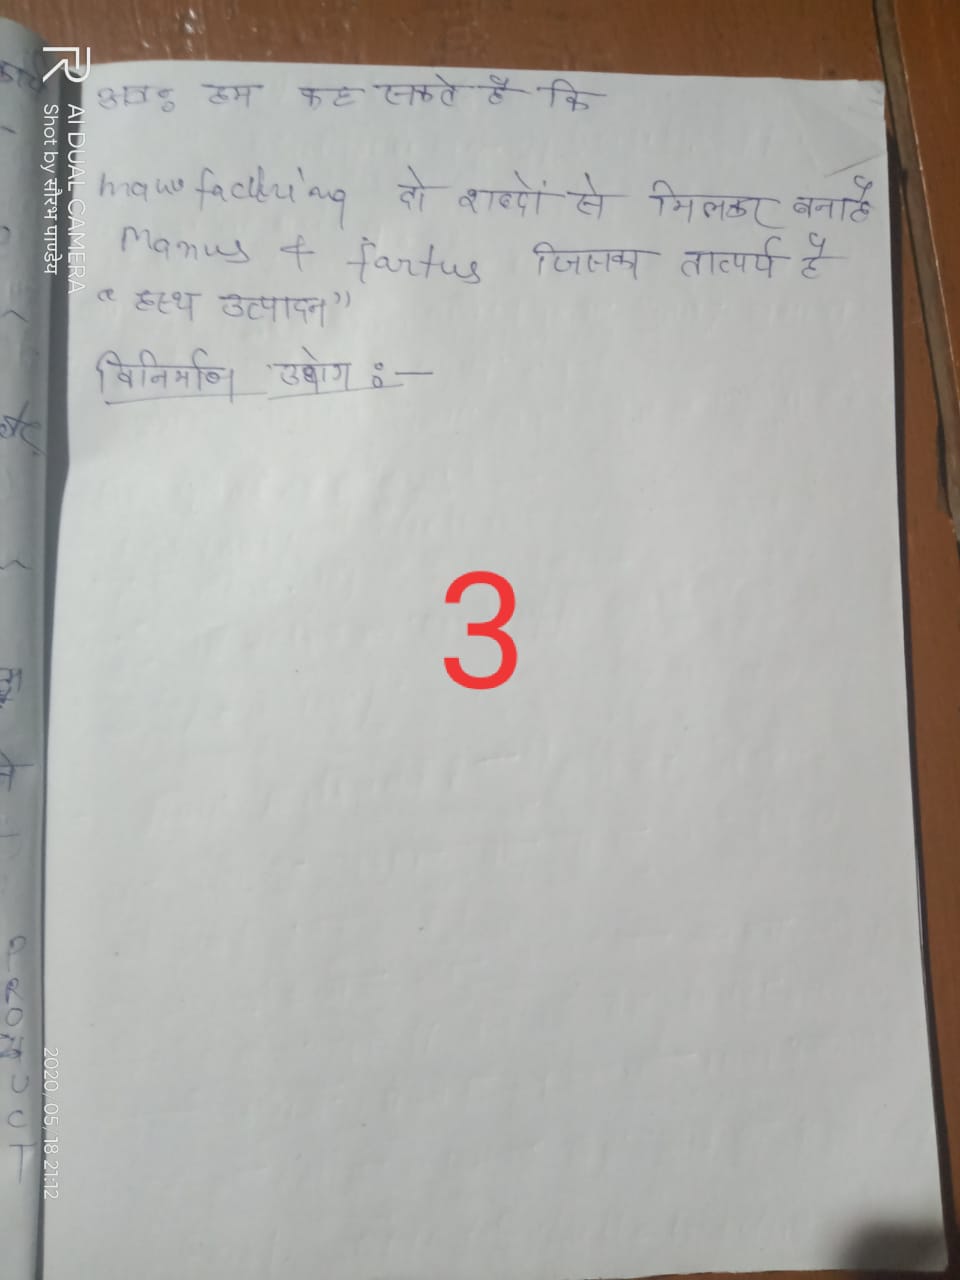 अतः हम कह सकते है कि
manufacturing दो शब्दों से मिलकर बना है
Manus + fartus जिसका तात्पर्य है
“हस्थ उत्पादन”
विनिर्माण उद्योग :-
3
AI DUAL CAMERA
Shot by सौरभ पाण्डेय
2020/05/18 21:12